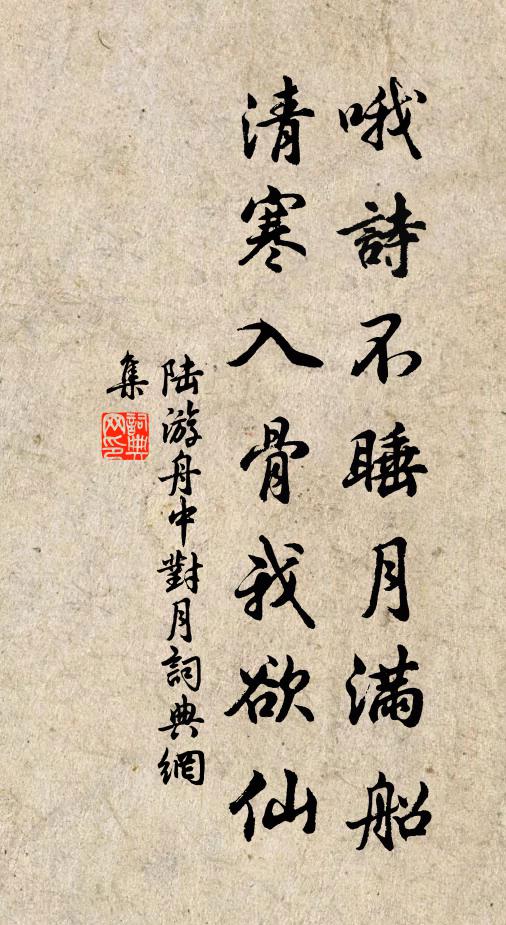 哦詩不睡月滿船
清寒入骨我欲仙
陆游舟中對月詞典網
集
詞典网印